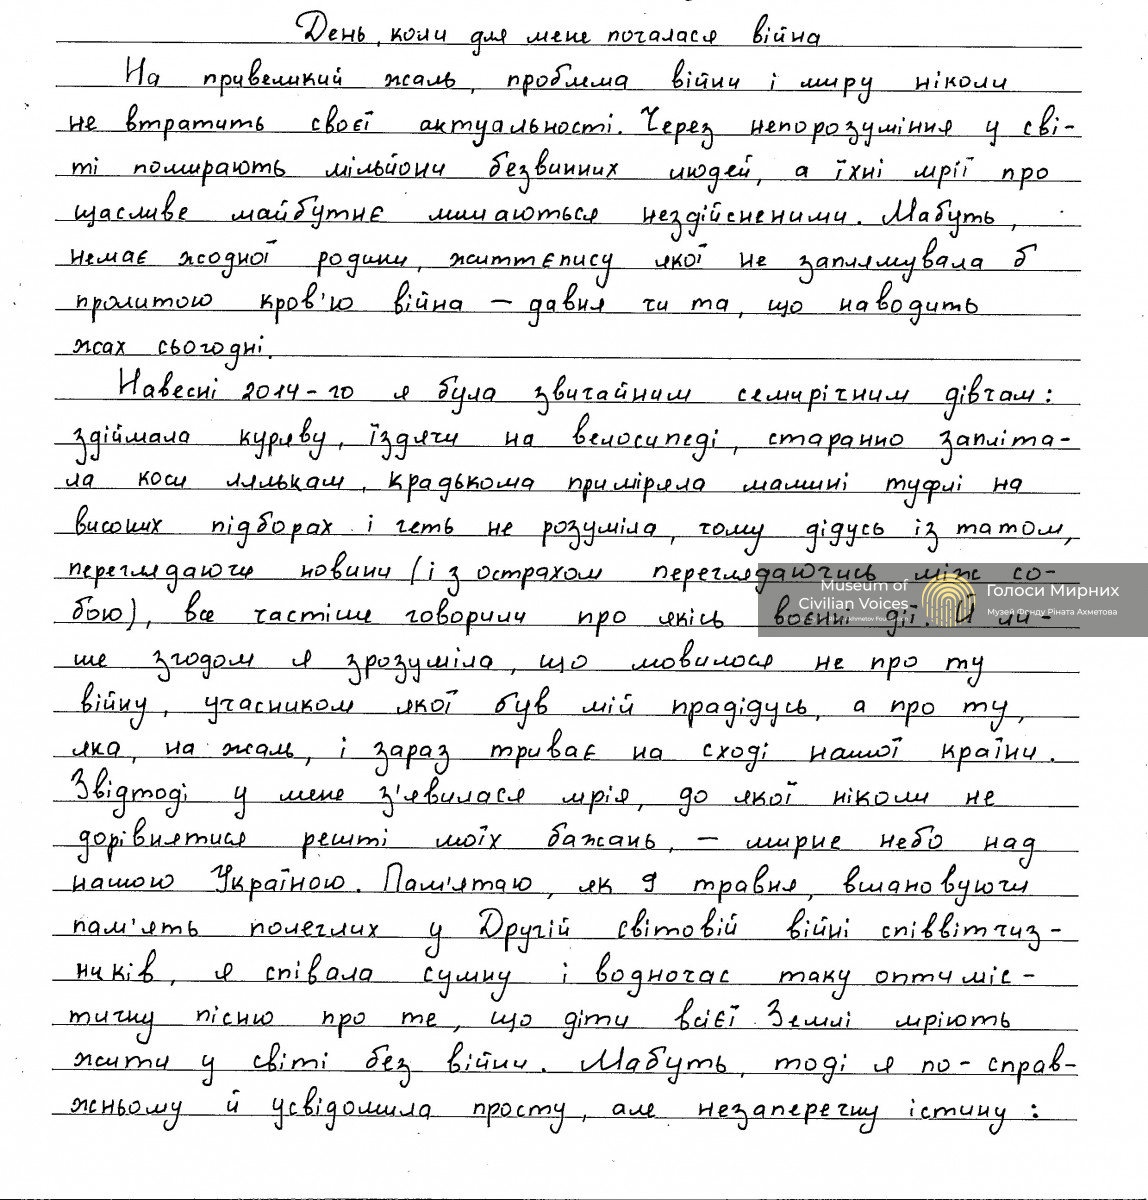 День, коли для мене почалася війна
На превеликий жаль, проблема війни і миру ніколи
не втратить своєї актуальності. Через непорозуміння у сві-
ті помирають мільйони безвинних людей, а їхні мрії про
щасливе майбутнє лишаються нездійсненими. Мабуть,
немає жодної родини, життєпису якої не заплямувала б
пролитою кров'ю війна – давня чи та, що наводить
жах сьогодні.
Навесні 2014-го я була звичайним семирічним дівчам:
здіймала куряву, їздячи на велосипеді, старанно запліта-
ла коси лялькам, крадькома приміряла мамині туфлі на
високих підборах і геть не розуміла, чому дідусь із татом,
переглядаючи новини (і з острахом переглядаючись між со-
бою), все частіше говорили про якісь воєнні дії. Й ли-
ше згодом я зрозуміла, що мовилося не про ту
війну, учасником якої був мій прадідусь, а про ту,
яка, на жаль, і зараз триває на сході нашої країни.
Звідтоді у мене з'явилася мрія, до якої ніколи не
дорівнятися решті моїх бажань, – мирне небо над
нашою Україною. Пам'ятаю, як 9 травня, вшановуючи
пам'ять полеглих у Другій світовій війні співвітчиз-
ників, я співала сумну і водночас таку оптиміс-
тичну пісню про те, що діти всієї Землі мріють
жити у світі без війни. Мабуть, тоді я по-справ-
жньому й усвідомила просту, але незаперечну істину:
Museum of
Civilian Voices
Голоси Мирних
Музей Фонду Ріната Ахметова